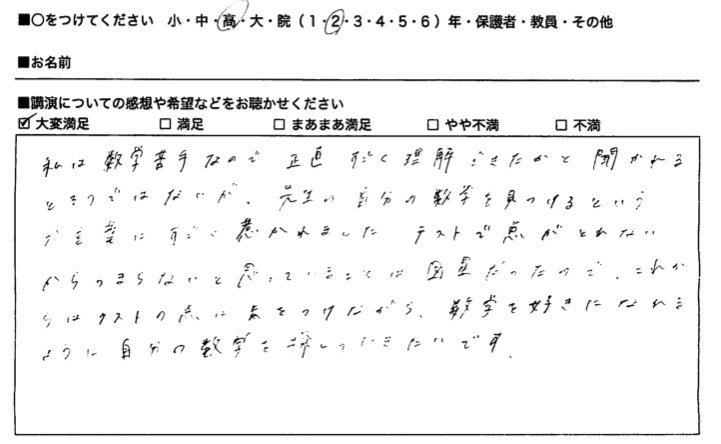 ■○をつけてください 小・中・高・大・院（1・2・3・4・5・6）年・保護者・教員・その他
■お名前
■講演についての感想や希望などをお聴かせください
☑ 大変満足 □ 満足 □ まあまあ満足 □ やや不満 □ 不満
私は数学苦手なので 正直 すごく理解できたかと聞かれる
とそうではないが、先生の自分の数学を見つけるという
お言葉にすごく惹かれました テストで点がとれない
からつまらないと思っていることは 図星だったので、これか
らはテストの点に気をつけながら、数学を好きになれる
ように自分の数学を探していきたいです。